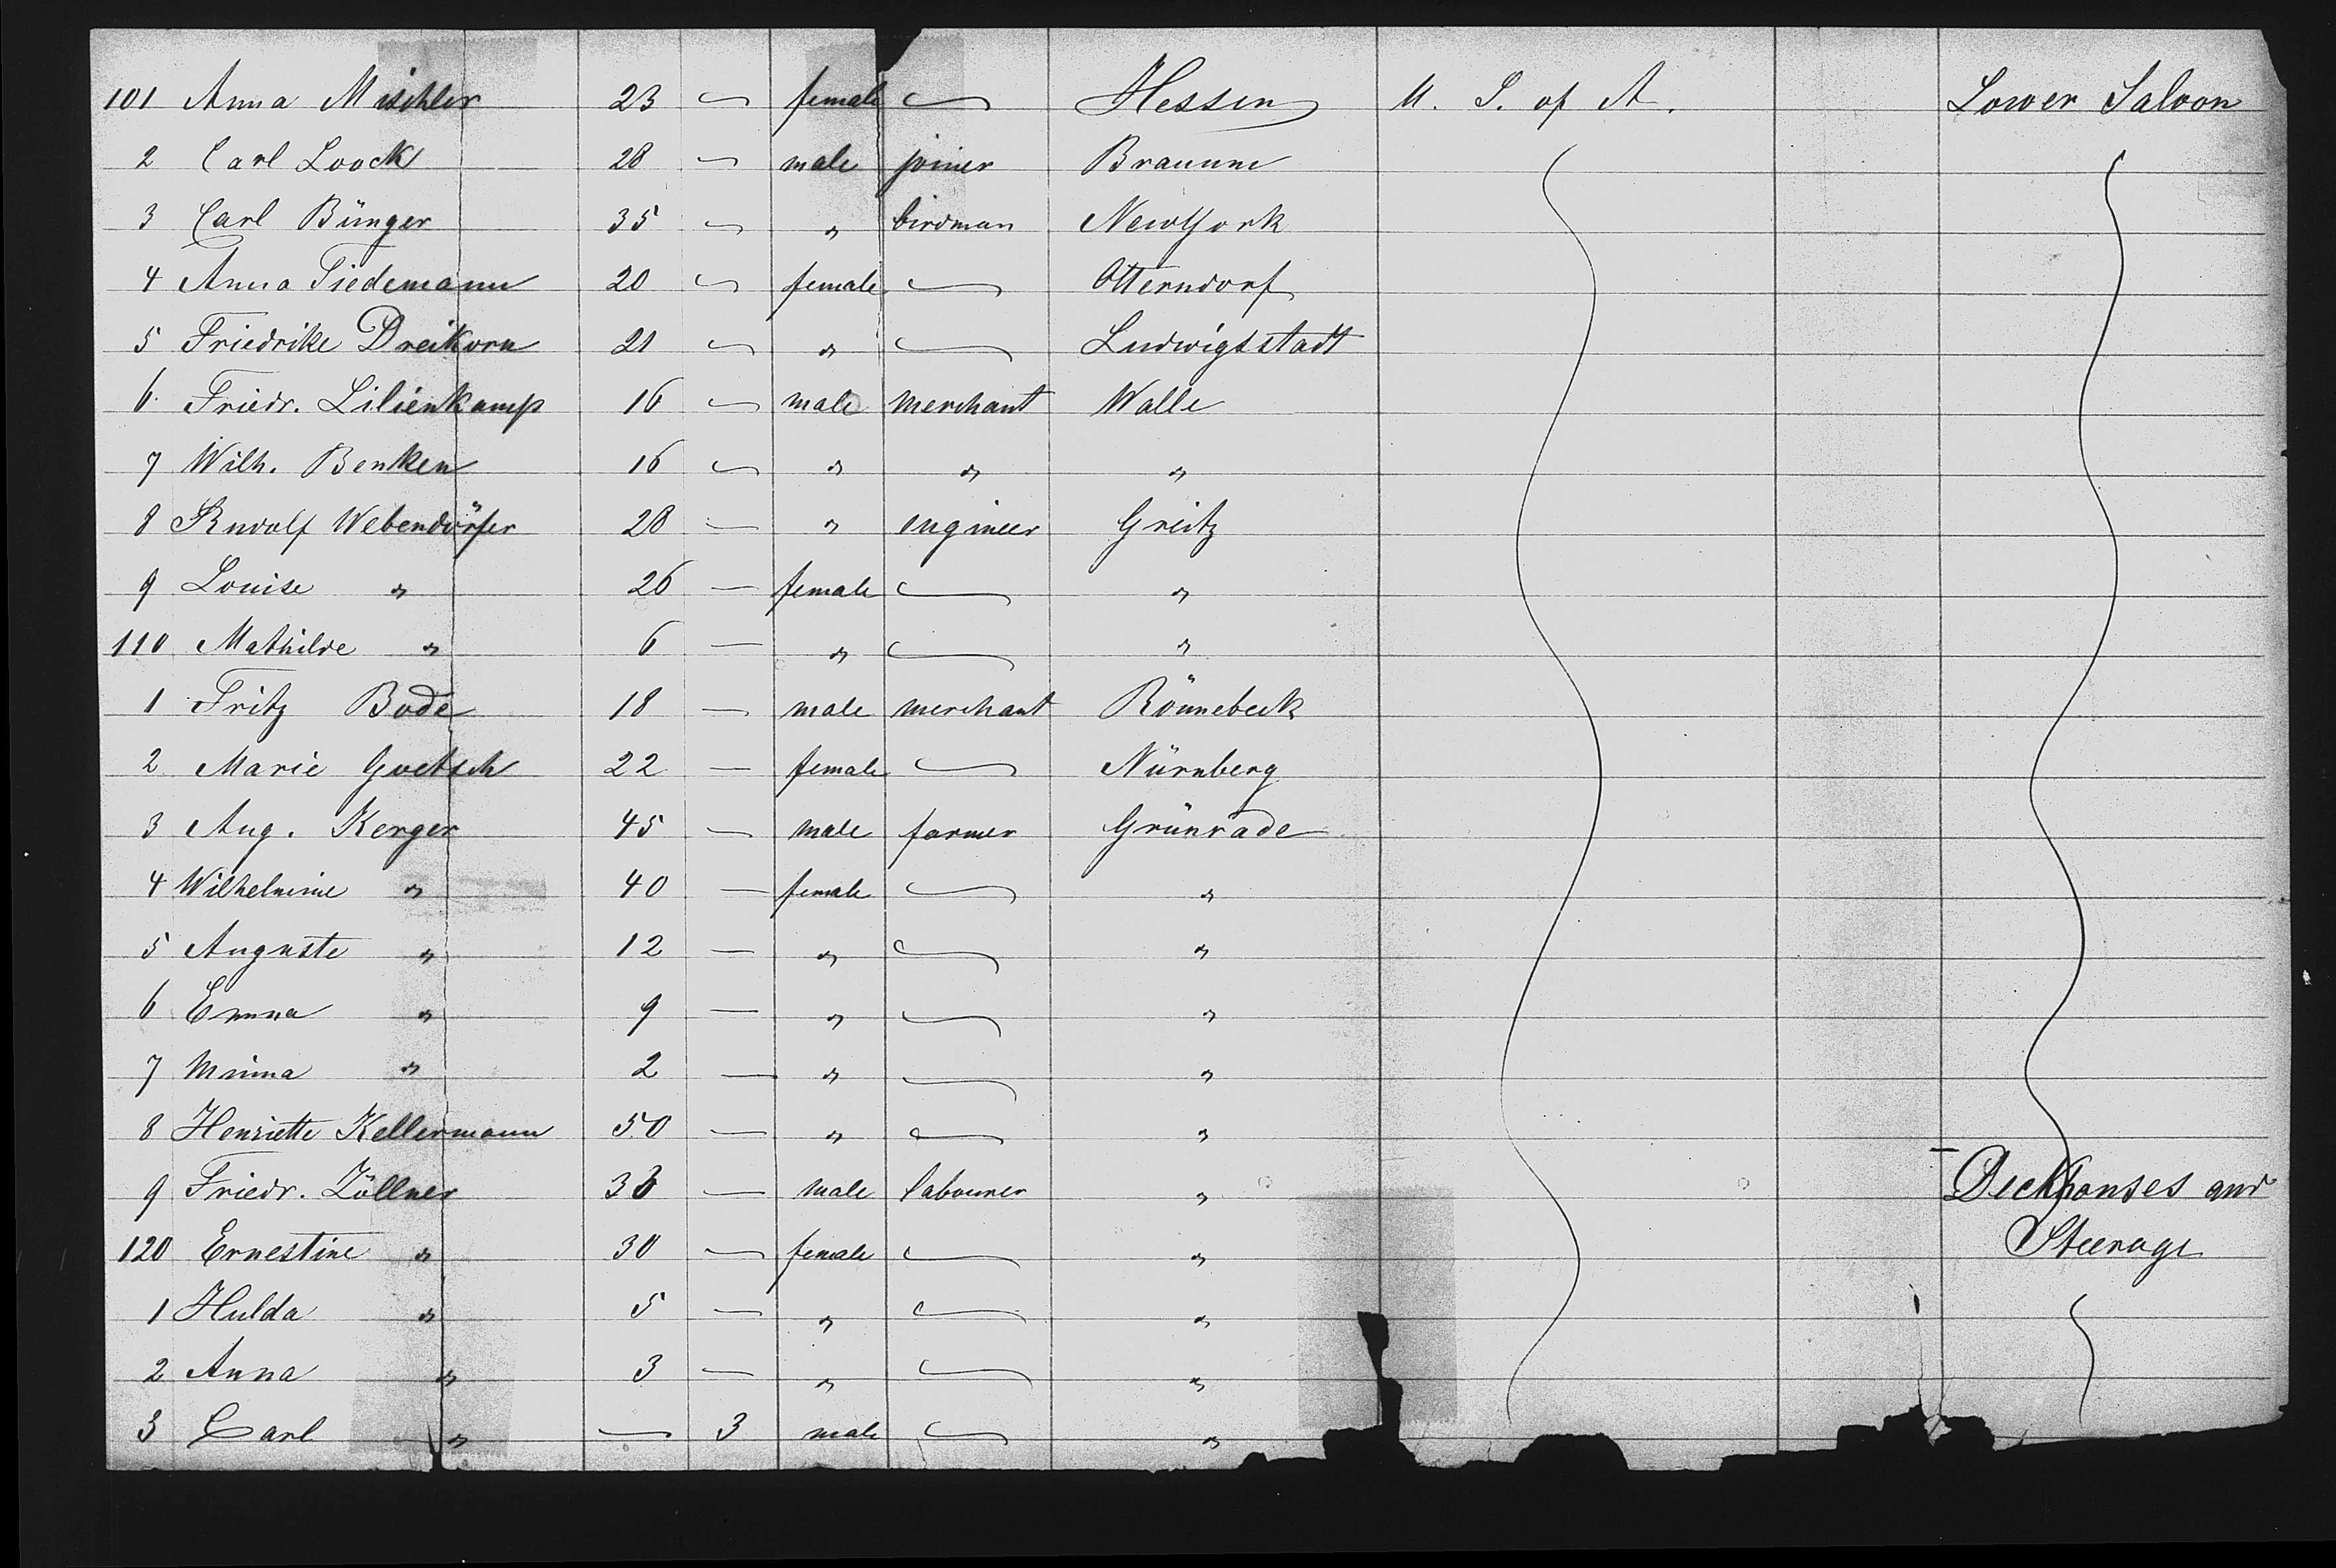 101 Anna Mischler 23 — female — Hessen U. S. of A. Lower Saloon
2 Carl Loock 28 — male joiner
3 Carl Bünger 35 — " birdman NewYork
4 Anna Tiedemann 20 — female — Otterndorf
5 Friedrike Dreikorn 21 — " — Ludwigsstadt
6. Friedr. Lilienkamp 16 — male merchant Walle
7 Wilh. Benken 16 — " " "
8 Rudolf Webendörfer 28 — " engineer Greitz
9 Louise " 26 — female — "
110 Mathilde " 6 — " — "
1 Fritz Bode 18 — male merchant Rönnebeck
2 Marie Goetsch 22 — female — Nürnberg
3 Aug. Kerger 45 — male farmer Grünrade
4 Wilhelmine " 40 — female — "
5 Auguste " 12 — " — "
6 Emma " 9 — " — "
7 Minna " 2 — " — "
8 Henriette Kellermann 50 — " — "
9 Friedr. Zöllner — male labourer " Deckhouses and
120 Ernestine " 30 — female — " Steerage
1 Hulda " 5 — " — "
2 Anna " 3 — " — "
3 Carl " — 3 male — "